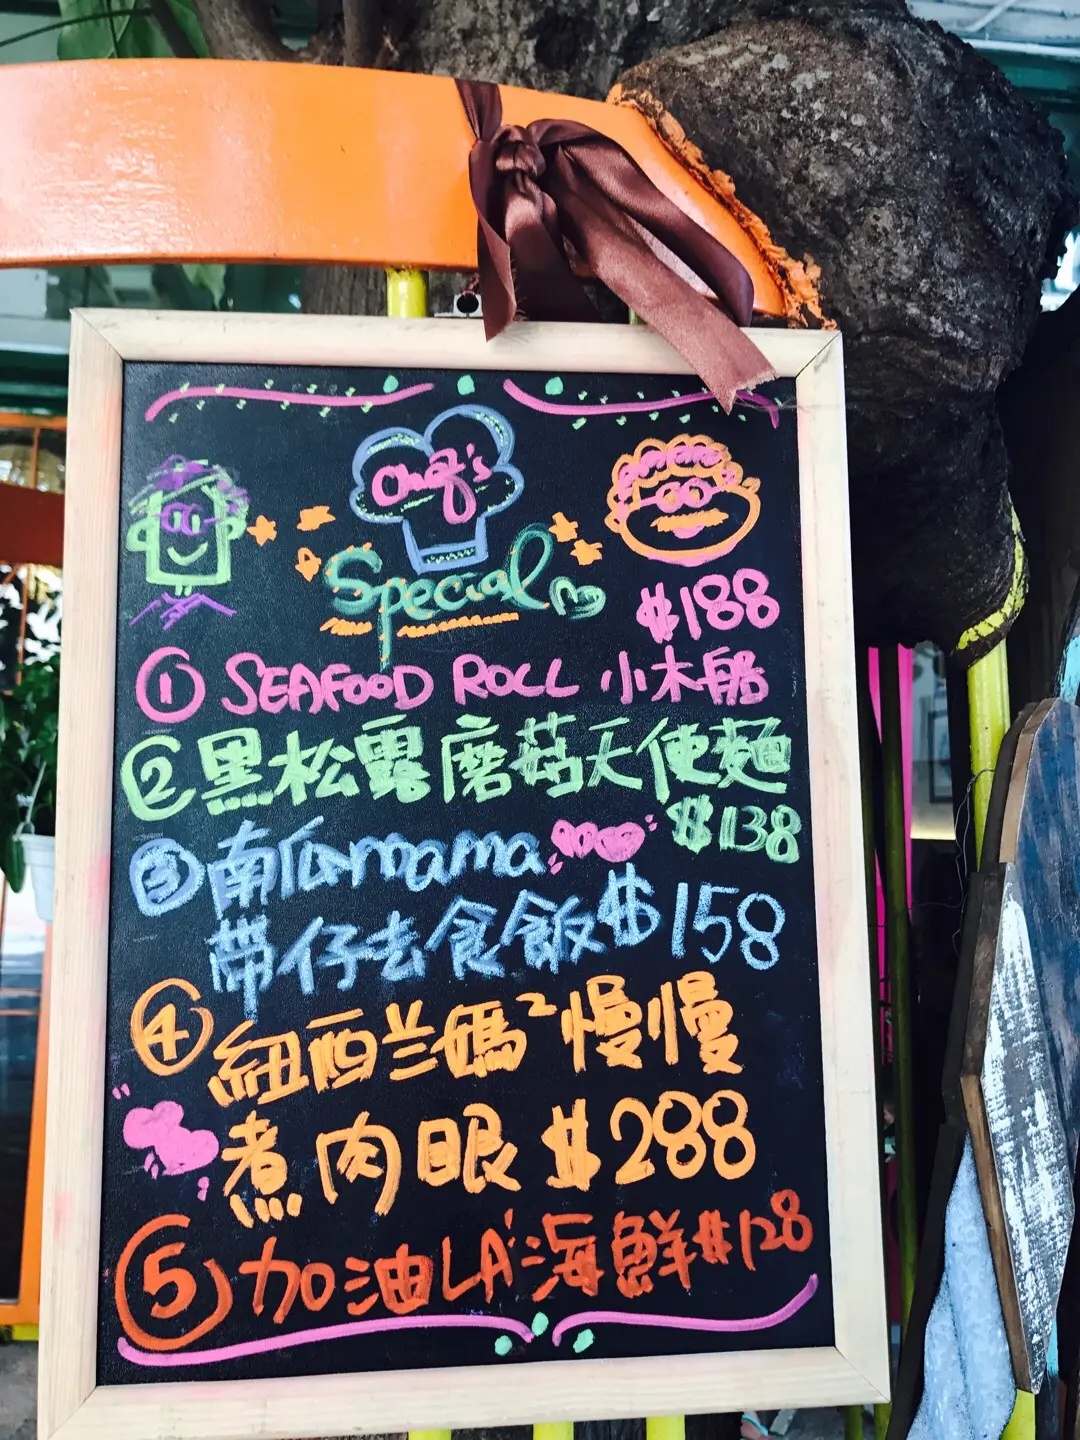 Chef's
Special
$188
① SEAFOOD ROLL 小木船
② 黑松露磨菇天使麵
$138
③ 南瓜mama
帶仔去食飯$158
④ 紐西兰媽²慢慢
煮肉眼$288
⑤ 加油LA'海鮮$128